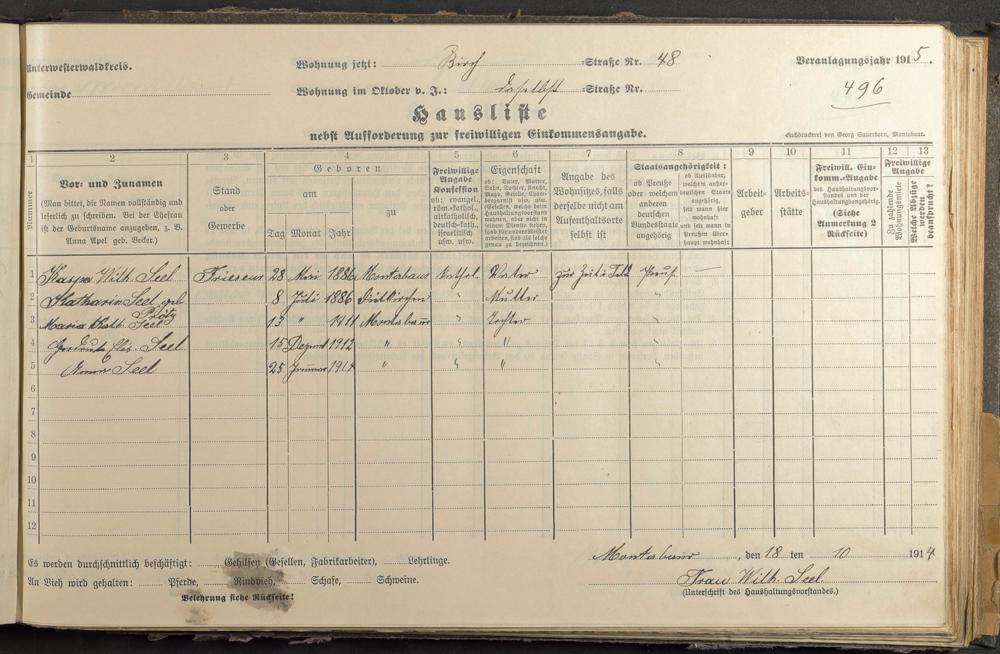 Unterwesterwaldkreis. Wohnung jetzt: Birch Straße Nr. 48 Veranlagungsjahr 1915.
Gemeinde Wohnung im Oktober v. J.: daselbst Straße Nr. 496
Hausliste
nebst Aufforderung zur freiwilligen Einkommensangabe.
Buchdruckerei von Georg Sauerborn, Montabaur.
1 2 3 4 5 6 7 8 9 10 11 12 13
Nummer
Vor- und Zunamen
(Man bittet, die Namen vollständig und
leserlich zu schreiben. Bei der Ehefrau
ist der Geburtsname anzugeben, z. B.
Anna Apel geb. Becker.)
Stand
oder
Gewerbe
Geboren
am
zu
Tag Monat Jahr
Freiwillige
Angabe
Konfession
ob: evangel.,
röm.-kathol.,
altkatholisch,
deutsch-kath.,
israelitisch
usw. usw.
Eigenschaft
ob: Vater, Mutter,
Sohn, Tochter, Knecht,
Magd, Geselle, Cham-
bergarnist usw. usw.
Angabe des
Wohnsitzes, falls
derselbe nicht am
Aufenthaltsorte
selbst ist
Staatsangehörigkeit:
ob Preuße
oder welchem
anderen
deutschen
Bundesstaate
angehörig
ob Ausländer,
welchem außer-
deutschen Staate
angehörig,
seit wann hier
wohnhaft
und seit wann in
Preußen über-
haupt wohnhaft
Arbeit-
geber
Arbeits-
stätte
Freiwill. Ein-
komm.-Angabe
des Haushaltungsvor-
standes und der
Haushaltungsangehörig.
(Siehe
Anmerkung 2
Rückseite)
Freiwillige
Angabe
Zu zahlende
Wohnungsmiete
Welche Abzüge
werden
beansprucht?
1 Kaspar Wilh. Seel Friseur 28 Mai 1886 Montabaur Kathol. Vater zur Zeit i. Feld Preuß. —
2 Katharina Seel geb. 8 Juli 1886 Dietkirchen " Mutter "
Plötz
3 Maria Kath. Seel 13 " 1911 Montabaur " Tochter "
4 Gertrude Elis. Seel 15 Dezemb 1912 " " " "
5 Anna Seel 25 Januar 1914 " " " "
6
7
8
9
10
11
12
Es werden durchschnittlich beschäftigt: Gehilfen (Gesellen, Fabrikarbeiter), Lehrlinge.
An Vieh wird gehalten: Pferde, Rindvieh, Schafe, Schweine.
Belehrung siehe Rückseite!
Montabaur, den 18 ten 10 1914
Frau Wilh. Seel
(Unterschrift des Haushaltungsvorstandes.)